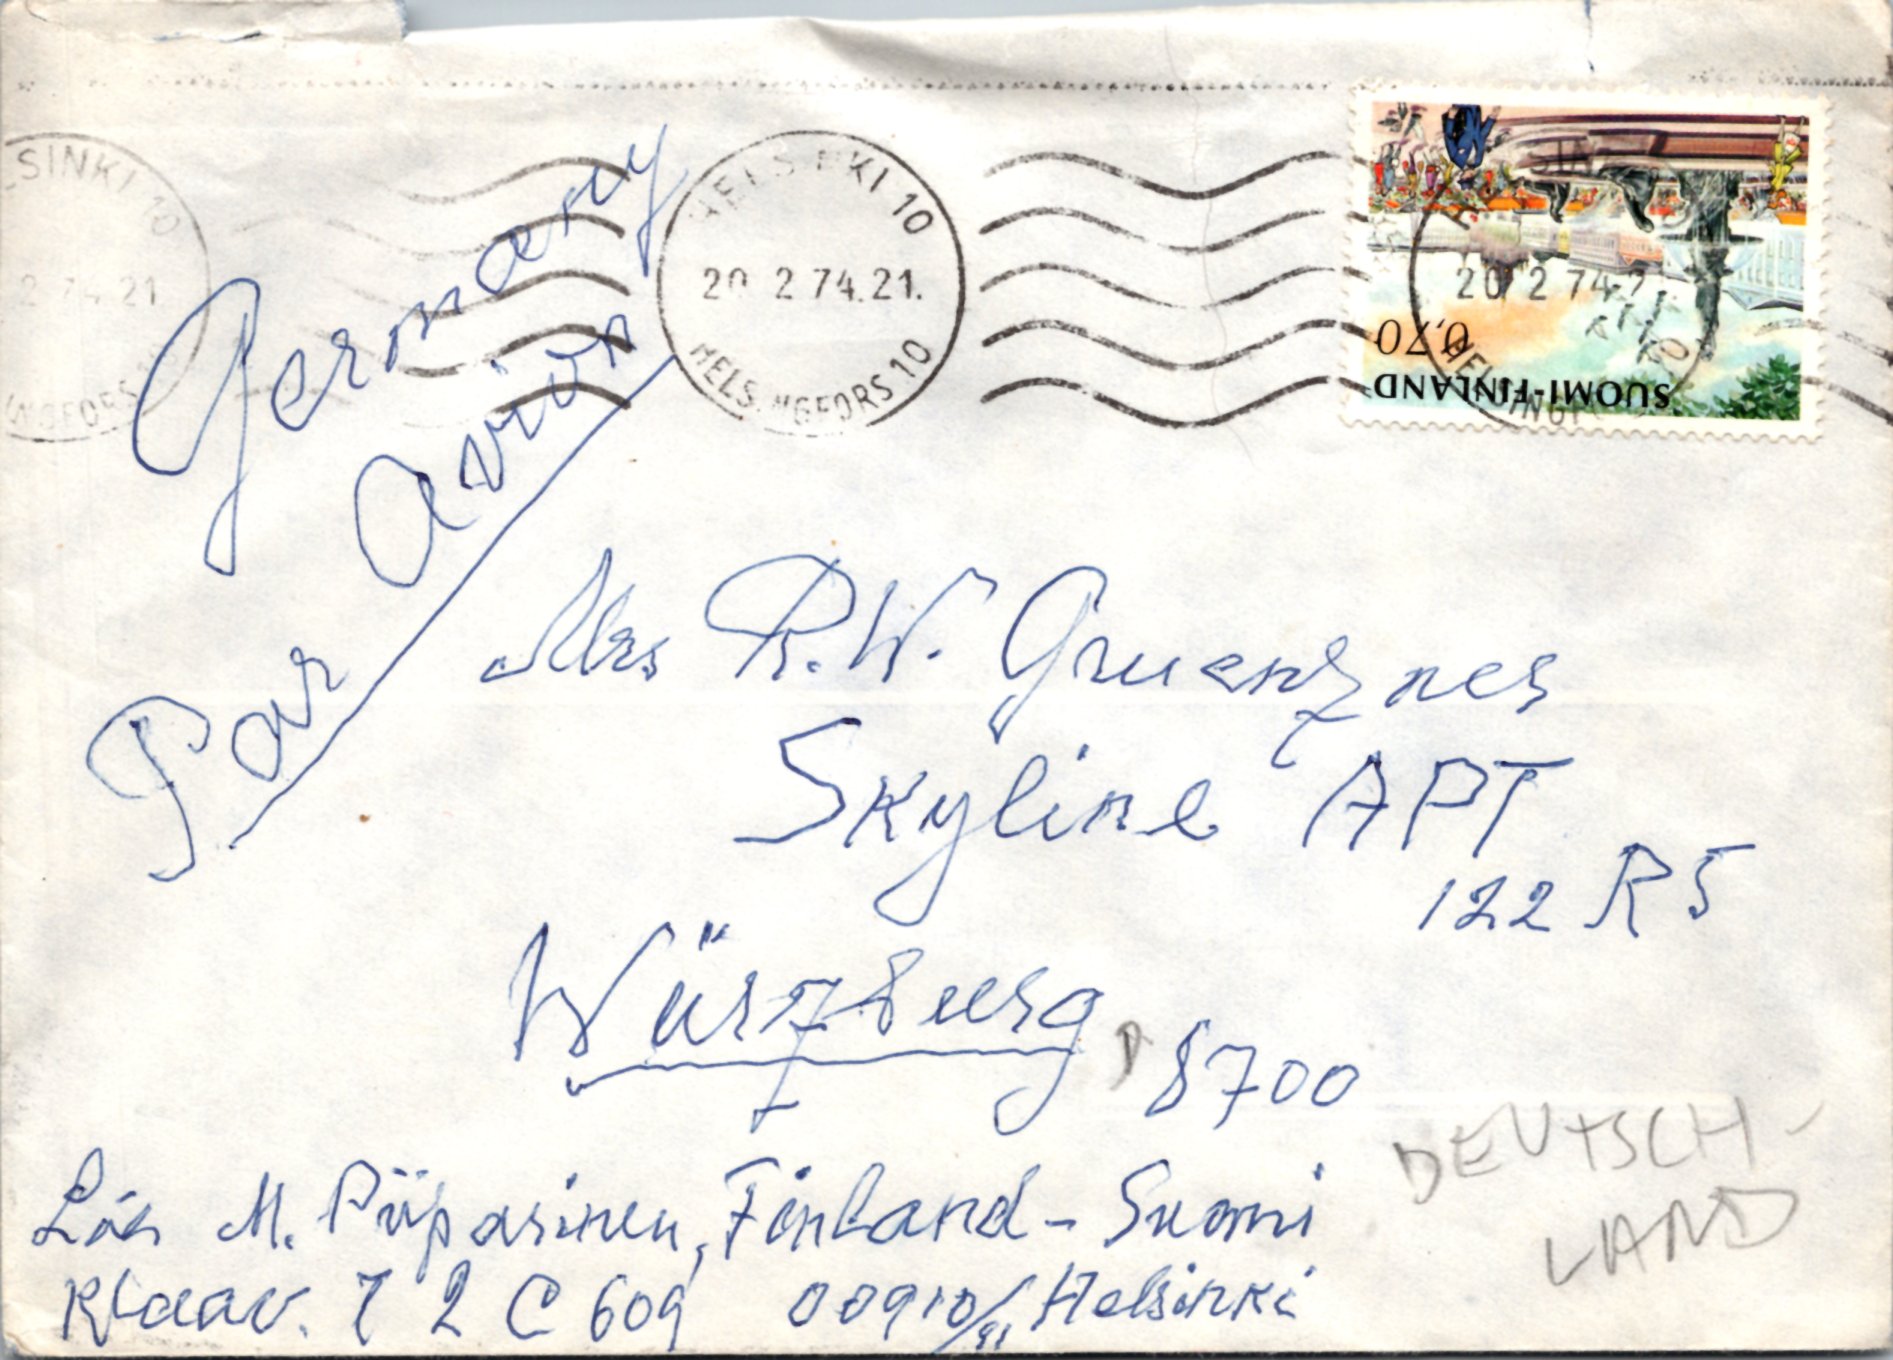 SINKI 10
2 74.21
NGFORS
HELSINKI 10
20 2 74.21.
HELSINGFORS 10
20 2 74.2
0,70
SUOMI-FINLAND
Germany
Par avion
Mrs R.W. Gruenzner
Skyline APT
122 R5
Würzburg D 8700
DEUTSCH-
LAND
M. Piiparinen, Finland - Suomi
2 C 609 00910/91 Helsinki